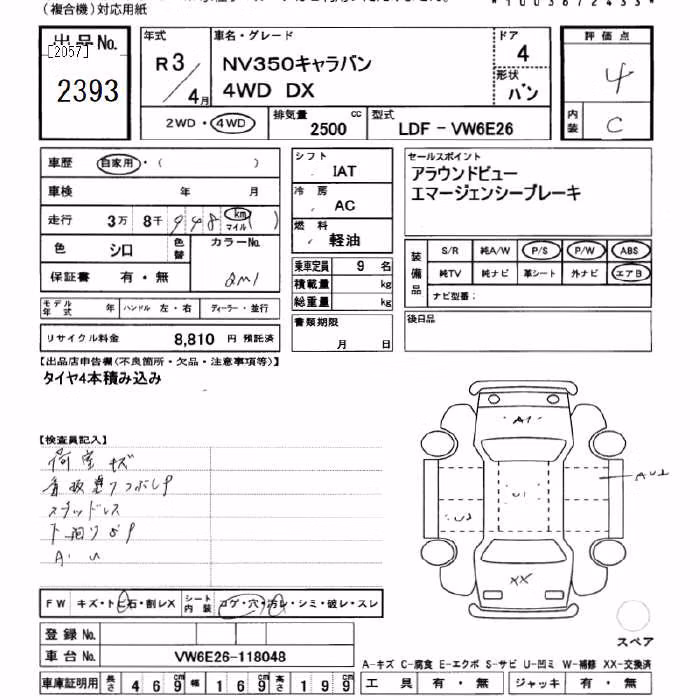 (複合機)対応用紙
出品No.
[2057]
2393
年式
R3
4月
車名・グレード
NV350キャラバン
4WD DX
ドア
4
形状
バン
評価点
4
内装
C
2WD・4WD
排気量
2500 cc
型式
LDF-VW6E26
車歴 自家用・( )
車検 年 月
走行 3万 8千 998 km マイル ( )
色 シロ 色替 カラーNo.
QM1
保証書 有・無
モデル年式 年 ハンドル 左・右 ディーラー・並行
リサイクル料金 8,810 円 預託済
シフト
IAT
冷房
AC
燃料
軽油
乗車定員 9 名
積載量 kg
総重量 kg
書類期限
月 日
セールスポイント
アラウンドビュー
エマージェンシーブレーキ
装備品
S/R 純A/W P/S P/W ABS
純TV 純ナビ 革シート 外ナビ エアB
ナビ型番:
後日品
【出品店申告欄(不良箇所・欠品・注意事項等)】
タイヤ4本積み込み
【検査員記入】
荷室 キズ
スタッドレス
A・U
A1
U1
U2
AU2
XX
FW キズ・トビ石・割レX シート内装 コゲ・穴・汚レ・シミ・破レ・スレ
登録No.
車台No. VW6E26-118048
車庫証明用 長さ 469cm 幅 169cm 高さ 199cm
スペア
A-キズ C-腐食 E-エクボ S-サビ U-凹ミ W-補修 XX-交換済
工具 有・無 ジャッキ 有・無